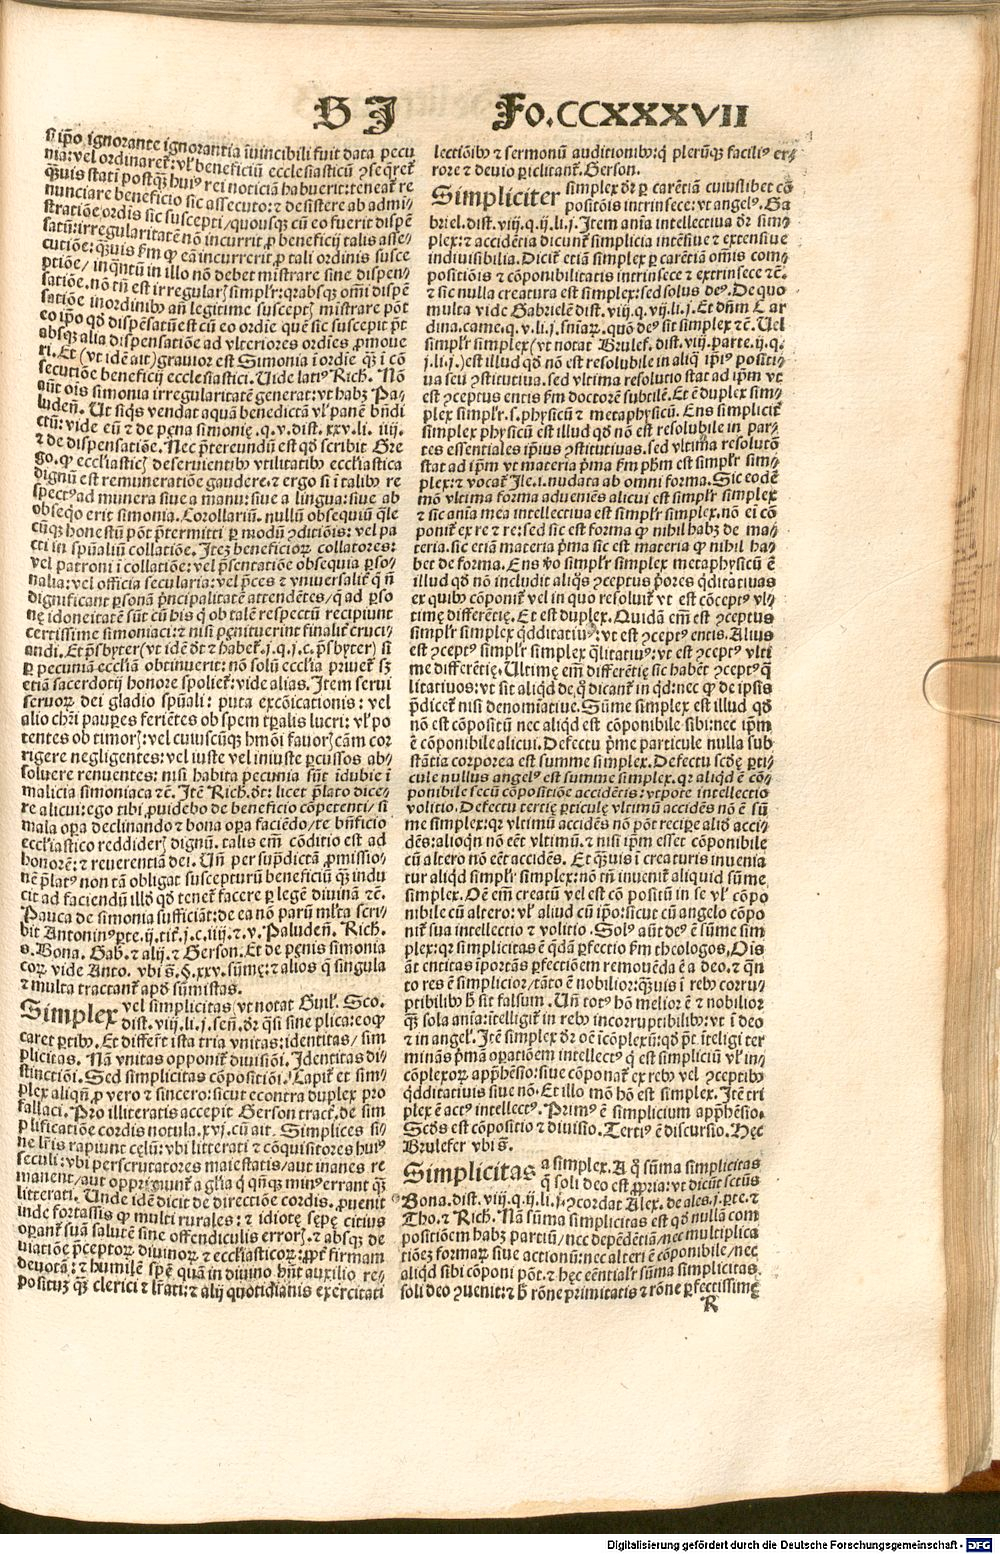 S J Fo.CCXXXVII
si ip̄o ignorante ignorantia īuincibili fuit data pecu
nia: vel ordinareť: vl̓ beneficiū ecclesiasticū ꝯseq̄reť
qͣuis statī postqͣꝫ huiꝰ rei noticiā habuerit: teneať re
nunciare beneficio sic assecuto: ⁊ desistere ab admi⸗
stratiōe ordīs sic suscepti / quousqꝫ cū eo fuerit dispē
satū: irregularitatē nō incurrit ꝓ beneficij talis asse⸗
cutiōe: qͣuis fm̄ ꝙ eā incurrerit ꝓ tali ordinis susce
ptiōe / inqͣntū in illo nō debet mīstrare sine dispen⸗
satiōe. nō tn̄ est irregularꝭ simplr̄: qr absqꝫ om̄i dispē
satiōe in ordinibꝰ añ legitime susceptꝭ mīstrare pōt
eo ip̄o qd̓ dispēsatū est cū eo ordīe quē sic suscepit p̄t
absqꝫ alia dispensatiōe ad vlteriores ordīes ꝓmoue
ri. Et (vt idē ait) grauior est Simonia ī ordīe qͣꝫ ī cō
secutiōe beneficij ecclesiastici. Uide latiꝰ Rich. Nō
aūt oīs simonia irregularitatē generat: vt habꝫ Pa⸗
luden̄. Ut siq̄s vendat aquā benedictā vl̓ panē bn̄di
ctū: vide eū ⁊ de pena simonię. q. v. dist. xxv. li. iiij.
⁊ de dispensatiōe. Nec p̄tereundū est qd̓ scribit Gre
go. ꝙ eccl̓iasticꝭ deseruientibꝰ vtilitatibꝰ eccl̓iastica
dignū est remuneratiōe gaudere. ⁊ ergo si ī talibꝰ re
spectꝰ ad munera siue a manu: siue a lingua: siue ab
obseqo erit simonia. Corollariū. nullū obsequiū q̄le
cūqꝫ honestū pōt p̄termitti ꝑ modū ꝯditiōis: vel pa
cti in sp̄ualiū collatiōe. Itēꝫ beneficioꝝ collatores:
vel patroni ī collatiōe: vel p̄sentatiōe obsequia ꝑso⸗
nalia: vel officia secularia: vel p̄ces ⁊ vniversaliť q̄ ñ
dignificant ꝑsonā p̄ncipalitatē attendētes / q̄ ad ꝑso
nę idoneitatē sūt cū his q ob talē respectū recipiunt
certissime simoniaci: ⁊ nisi pęnituerint finaliť cruci⸗
andi. Et p̄sbyter (vt idē d̄t ⁊ habeť. j. q. j. c. p̄sbyter) si
ꝑ pecuniā eccl̓iam obtinuerit: nō solū eccl̓ia priueť sꝫ
etiā sacerdotij honore spolieť: vide alias. Item serui
seruoꝝ dei gladio sp̄uali: puta excōicationis: vel
alio chr̄i pauꝑes feriētes ob spem tꝑalis lucri: vl̓ po
tentes ob timorꝭ: vel cuiuscūqꝫ hmōi fauorꝭ cām cor
rigere negligentes: vel iuste vel iniuste ꝑcussos ab⸗
soluere renuentes: nisi habita pecunia sūt īdubie ī
malicia simoniaca ⁊c̄. Itē Rich. d̄t: licet p̄lato dice⸗
re alicui: ego tibi ꝓuidebo de beneficio cōpetenti / si
mala oꝑa declinando ⁊ bona oꝑa faciēdo / te bn̄ficio
eccl̓iastico reddiderꝭ dignū. talis em̄ cōditio est ad
honorē: ⁊ reuerentiā dei. Uñ per sup̄dictā ꝓmissio⸗
nē p̄latꝰ non tā obligat suscepturū beneficiū qͣꝫ indu
cit ad faciendū illd̓ qd̓ teneť facere ꝑ legē diuinā ⁊c̄.
Pauca de simonia sufficiāt: de ea nō parū ml̓ta scri⸗
bit Antoninꝰ ꝑte. ij. tiť. j. c. iiij. ⁊ v. Paluden̄. Rich.
s. Bona. Gab. ⁊ alij. ⁊ Gerson. Et de pęnis simonia
coꝝ vide Anto. vbi s̄. §. xxv. sūmę: ⁊ alios q̄ singula
⁊ multa tractanť apd̓ sūmistas.
Simplex vel simplicitas (vt notat Guil̓. Sco.
dist. viij. li. j. sen̄. dr̄ q̄si sine plica: eo ꝙ
caret ꝑtibꝰ. Et differt̄ ista tria vnitas: identitas / sim
plicitas. Nā vnitas opponiť diuisiōi. Identitas di⸗
stinctiōi. Sed simplicitas cōpositiōi. Capiť et sim⸗
plex aliqñ ꝓ vero ⁊ sincero: sicut econtra duplex pro
fallaci. Pro illiteratis accepit Gerson tract̄. de sim
plificatiōe cordis notula. xvj. cū ait. Simplices si⸗
ne lr̄is rapiunt cęlū: vbi litterati ⁊ cōquisitores huiꝰ
seculi: vbi perscrutatores maiestatis / aut inanes re
manent / aut opprimunť a gl̓ia q̄ qn̄qꝫ minꝰ errant qͣꝫ
litterati. Unde idē dicit de directiōe cordis. ꝓuenit
inde fortassis ꝙ multi rurales: ⁊ idiotę sępe citius
oꝑanť suā salutē sine offendiculis errorꝭ. ⁊ absqꝫ de
uiatiōe p̄ceptoꝝ diuinoꝝ ⁊ eccl̓iasticoꝝ: ꝓpť firmam
deuotā: ⁊ humilē spē quā in diuino hn̄t auxilio re⸗
positaꝫ qͣꝫ clerici ⁊ lr̄ati: ⁊ alij quotidianis exercitati
lectiōibꝰ ⁊ sermonū auditionibꝰ: q̄ plerūqꝫ faciliꝰ er⸗
rore ⁊ deuio ꝑiclitanť. Gerson.
Simpliciter simplex dr̄ ꝑ carētiā cuiuslibet cō
positōis intrinsece: vt angelꝰ. Ga
briel. dist. viij. q. ij. li. j. Item aīa intellectiua dr̄ sim⸗
plex: ⁊ accidētia dicunť simplicia intēsiue ⁊ extensiue
indiuisibilia. Diciť etiā simplex ꝑ carētiā om̄is com⸗
positiōis ⁊ cōponibilitatis intrinsece ⁊ extrinsece ⁊c̄.
⁊ sic nulla creatura est simplex: sed solus deꝰ. De quo
multa vide Gabrielē dist. viij. q. vij. li. j. Et dn̄m Car
dina. came. q. v. li. j. sn̄iaꝝ. quō deꝰ sit simplex ⁊c̄. Uel
simplr̄ simplex (vt notat Brulef. dist. viij. parte. ij. q.
j. li. j.) est illud qd̓ nō est resolubile in aliq̄ ip̄iꝰ positi⸗
ua seu ꝯstitutiua. sed vltima resolutio stat ad ip̄m vt
est ens ꝯceptus entis fm̄ doctorē subtilē. Et ē duplex sim⸗
plex simplr̄. s. physicū ⁊ metaphysicū. Ens simpliciť
simplex physicū est illud qd̓ nō est resolubile in par⸗
tes essentiales ip̄iꝰ ꝯstitutiuas. sed vltima resolutō
stat ad ip̄m vt materia p̄ma fm̄ ph̄m est simplr̄ sim⸗
plex: ⁊ vocať Ile. i. nudata ab omni forma. Sic eodē
mō vltima forma adueniēs alicui est simplr̄ simplex
⁊ sic aīa mea intellectiua est simplr̄ simplex. nō ei cō
poniť ex re ⁊ re: sed sic est forma ꝙ nihil habꝫ de ma⸗
teria. sic etiā materia p̄ma sic est materia ꝙ nihil ha⸗
bet de forma. Ens v̓o simplr̄ simplex metaphysicū ē
illud qd̓ nō includit aliq̄s ꝯceptus p̄ores q̄ditatiuas
ex quibꝰ cōponiť vel in quo resoluiť vt est cōceptꝰ vl⸗
timę differētię. Et est duplex. Quidā em̄ est ꝯceptus
simplr̄ simplex q̄dditatiuꝰ: vt est ꝯceptꝰ entis. Alius
est ꝯceptꝰ simplr̄ simplex q̄litatiuꝰ: vt est ꝯceptꝰ vlti
me differētię. Ultimę em̄ differētię sic habēt ꝯceptꝰ q̄
litatiuos: vt sit aliqd̓ de q̄ dicanť in qd̓: nec ꝙ de ipsis
p̄diceť nisi denominatiue. Sūme simplex est illud qd̓
nō est cōpositū nec aliqd̓ est cōponibile sibi: nec ip̄m
ē cōponibile alicui. Defectu p̄me particule nulla sub
stātia corporea est summe simplex. Defectu scd̓ę ꝑti⸗
cule nullus angelꝰ est summe simplex. qr aliqd̓ ē cō⸗
ponibile secū cōpositiōe accidētis: vtpote intellectio
volitio. Defectu tertię ꝑticulę vltimū accidēs nō ē sū
me simplex: qr vltimū accidēs nō pōt reciꝑe aliō acci⸗
dēs: alioqn̄ nō eēt vltimū. ⁊ nisi ip̄m esset cōponibile
cū altero nō eēt accidēs. Et qͣꝫuis ī creaturis inuenia
tur aliqd̓ simplr̄ simplex: nō tn̄ inueniť aliquid sūme
simplex. Oē em̄ creatū vel est cō positū in se vl̓ cōpo
nibile cū altero: vl̓ aliud cū ip̄o: sicut cū angelo cōpo
niť sua intellectio ⁊ volitio. Solꝰ aūt deꝰ ē sūme sim
plex: qr simplicitas ē q̄dā ꝑfectio fm̄ theologos, Oīs
aūt entitas īportās ꝑfectiōem remouēda ē a deo. ⁊ qn̄
to res ē simplicior / tāto ē nobilior: qͣuis ī rebꝰ corru⸗
ptibilibꝰ ħ sit falsum. Uñ totꝰ hō melior ē ⁊ nobilior
qͣꝫ sola aīa: ītelligiť in rebꝰ incorruptibilibꝰ: vt ī deo
⁊ in angel̓. Itē simplex dr̄ oē īcōplexū: qd̓ p̄t ītelligi ter
minās p̄mā oꝑatiōem intellectꝰ q̄ est simpliciū vl̓ in⸗
cōplexoꝝ app̄hēsio: siue cōponať ex rebꝰ vel ꝯceptibꝰ
q̄dditatiuis siue nō. Et illo mō hō est simplex. Itē tri
plex ē actꝰ intellectꝰ. Primꝰ ē simplicium app̄hēsio.
Scd̓s est cōpositio ⁊ diuisio. Tertiꝰ ē discursio. Hęc
Brulefer vbi s̄.
Simplicitas a simplex. A q̄ sūma simplicitas
q̄ soli deo est ꝓpria: vt dicūt sctūs
Bona. dist. viij. q. ij. li. j. ꝯcordat Alex. de ales. j. ꝑte. ⁊
Tho. ⁊ Rich. Nā sūma simplicitas est qd̓ nullā com
positiōem habꝫ partiū / nec depēdētiā / nec multiplica
tiōeꝫ formaꝝ siue actionū: nec alteri ē cōponibile / nec
aliqd̓ sibi cōponi pōt. ⁊ hęc eēntialr̄ sūma simplicitas
soli deo ꝯuenit: ⁊ ħ rōne primitatis ⁊ rōne ꝑfectissimę
R
Digitalisierung gefördert durch die Deutsche Forschungsgemeinschaft - DFG